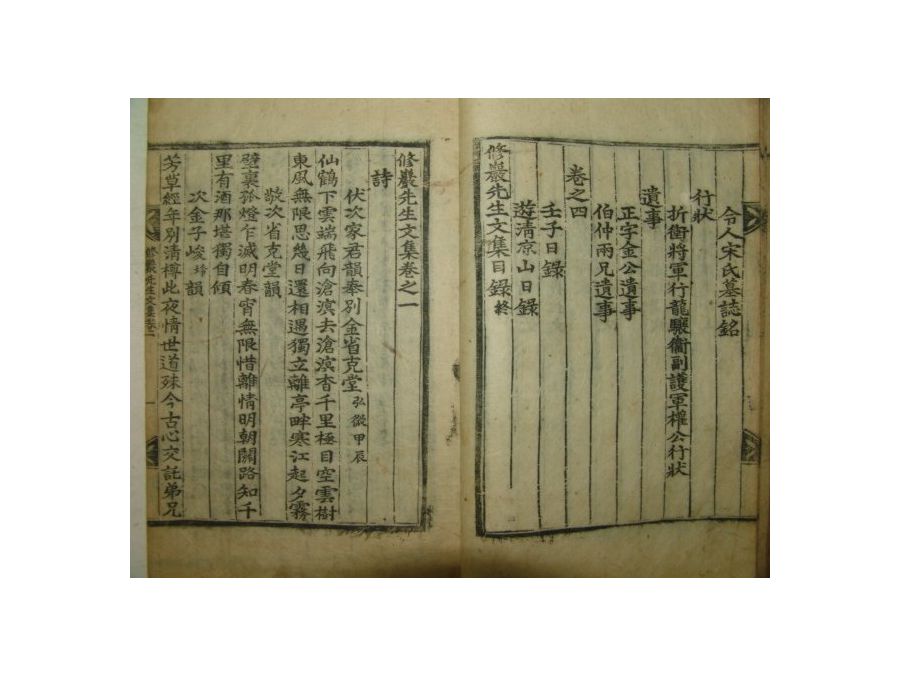 令人宋氏墓誌銘
行狀
折衝將軍行龍驤衛副護軍權公行狀
遺事
正字金公遺事
伯仲兩兄遺事
卷之四
壬子日錄
遊清凉山日錄
修巖先生文集目錄終
修巖先生文集卷之一
詩
伏次家君韻奉別金省克堂弘微甲辰
仙鶴下雲端飛向滄溟去滄溟杳千里極目空雲樹
東風無限思幾日還相遇獨立離亭畔寒江起夕霧
敬次省克堂韻
壁裏孤燈乍滅明春宵無限惜離情明朝關路知千
里有酒那堪獨自傾
次金子峻韻
芳草經年別清樽此夜情世道殊今古心交託弟兄
修巖先生文集卷一